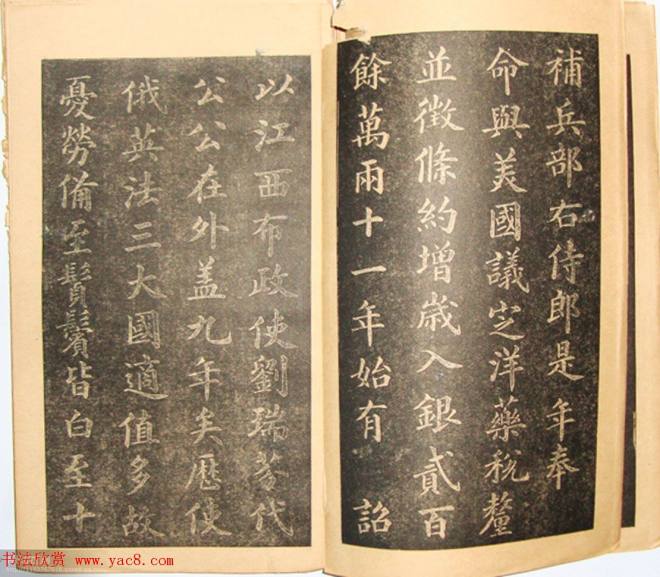 補兵部右侍郎是年奉
命與美國議定洋藥稅釐
並徵條約增歲入銀貳百
餘萬兩十一年始有 詔
以江西布政使劉瑞芬代
公公在外盖九年矣歷使
俄英法三大國適值多故
憂勞備至鬚鬢皆白至十
书法欣赏 www.yac8.com